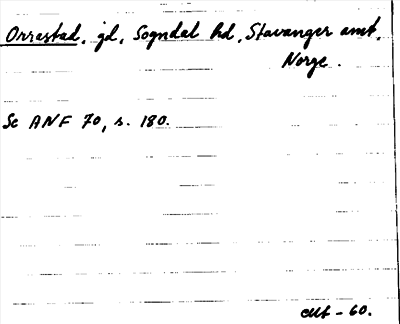 Orrastad, gd, Sogndal hd, Stavanger amt,
Norge.
Se ANF 70, s. 180.
-60.